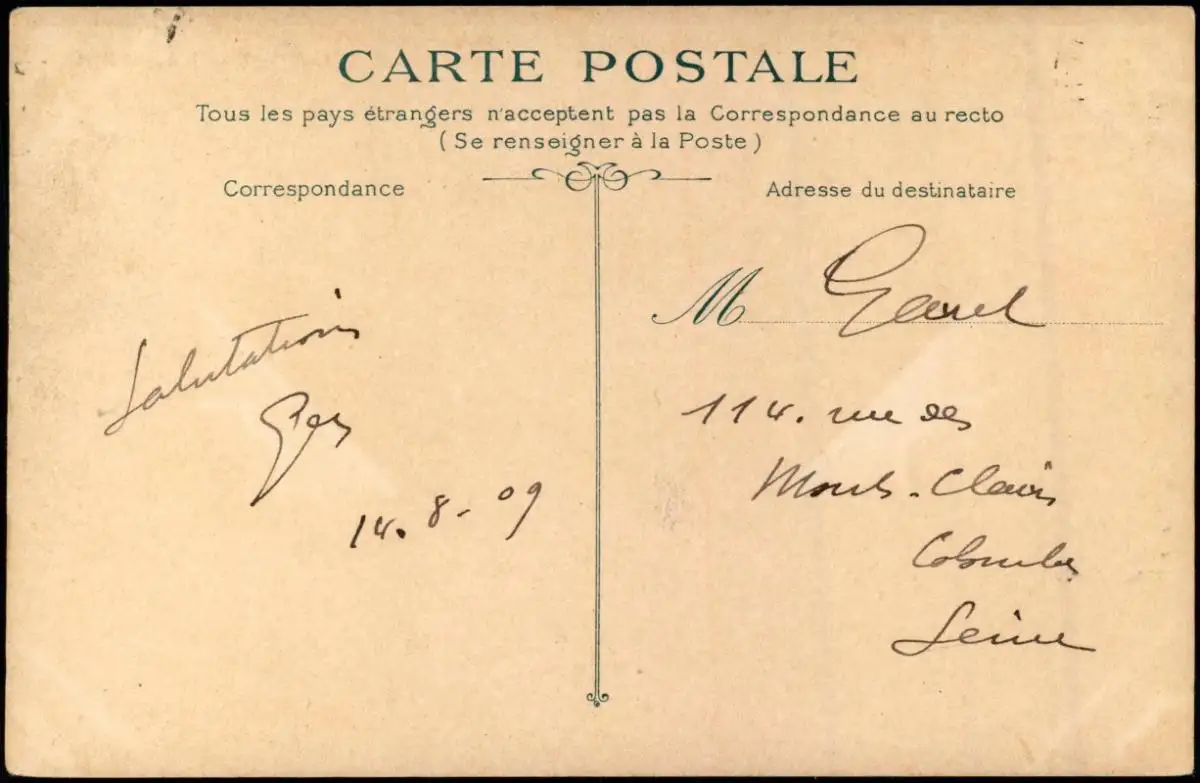 CARTE POSTALE
Tous les pays étrangers n'acceptent pas la Correspondance au recto
( Se renseigner à la Poste )
Correspondance
Salutations
14. 8. 09
Adresse du destinataire
M
114. rue des
Monts-Clairs
Colombes
Seine